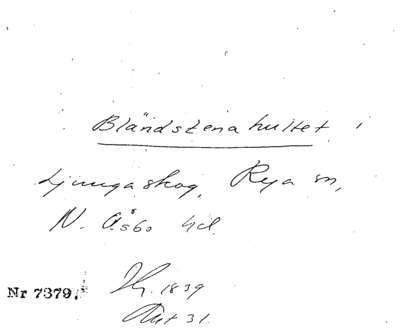 Bländstenahultet i
Ljungaskog, Rya sn,
N. Åsbo hd.
Nr 7379. 1839
Akt 31.